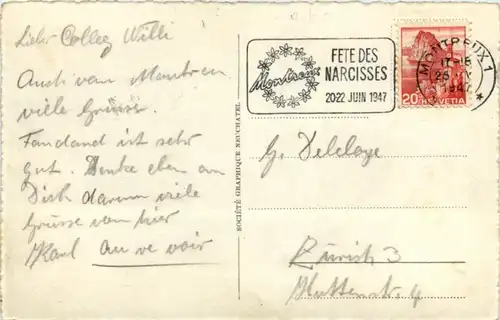 Lieber Colleg Willi
Auch von Montreux
viele Grüsse.
ist sehr
gut. Denke eben an
Dich darum viele
Grüsse von hier
Karl au re voir
SOCIÉTÉ GRAPHIQUE NEUCHATEL
Montreux
FETE DES
NARCISSES
2022 JUIN 1947
MONTREUX 1
1947
20 HELVETIA
G. Delelaye
Zürich 3